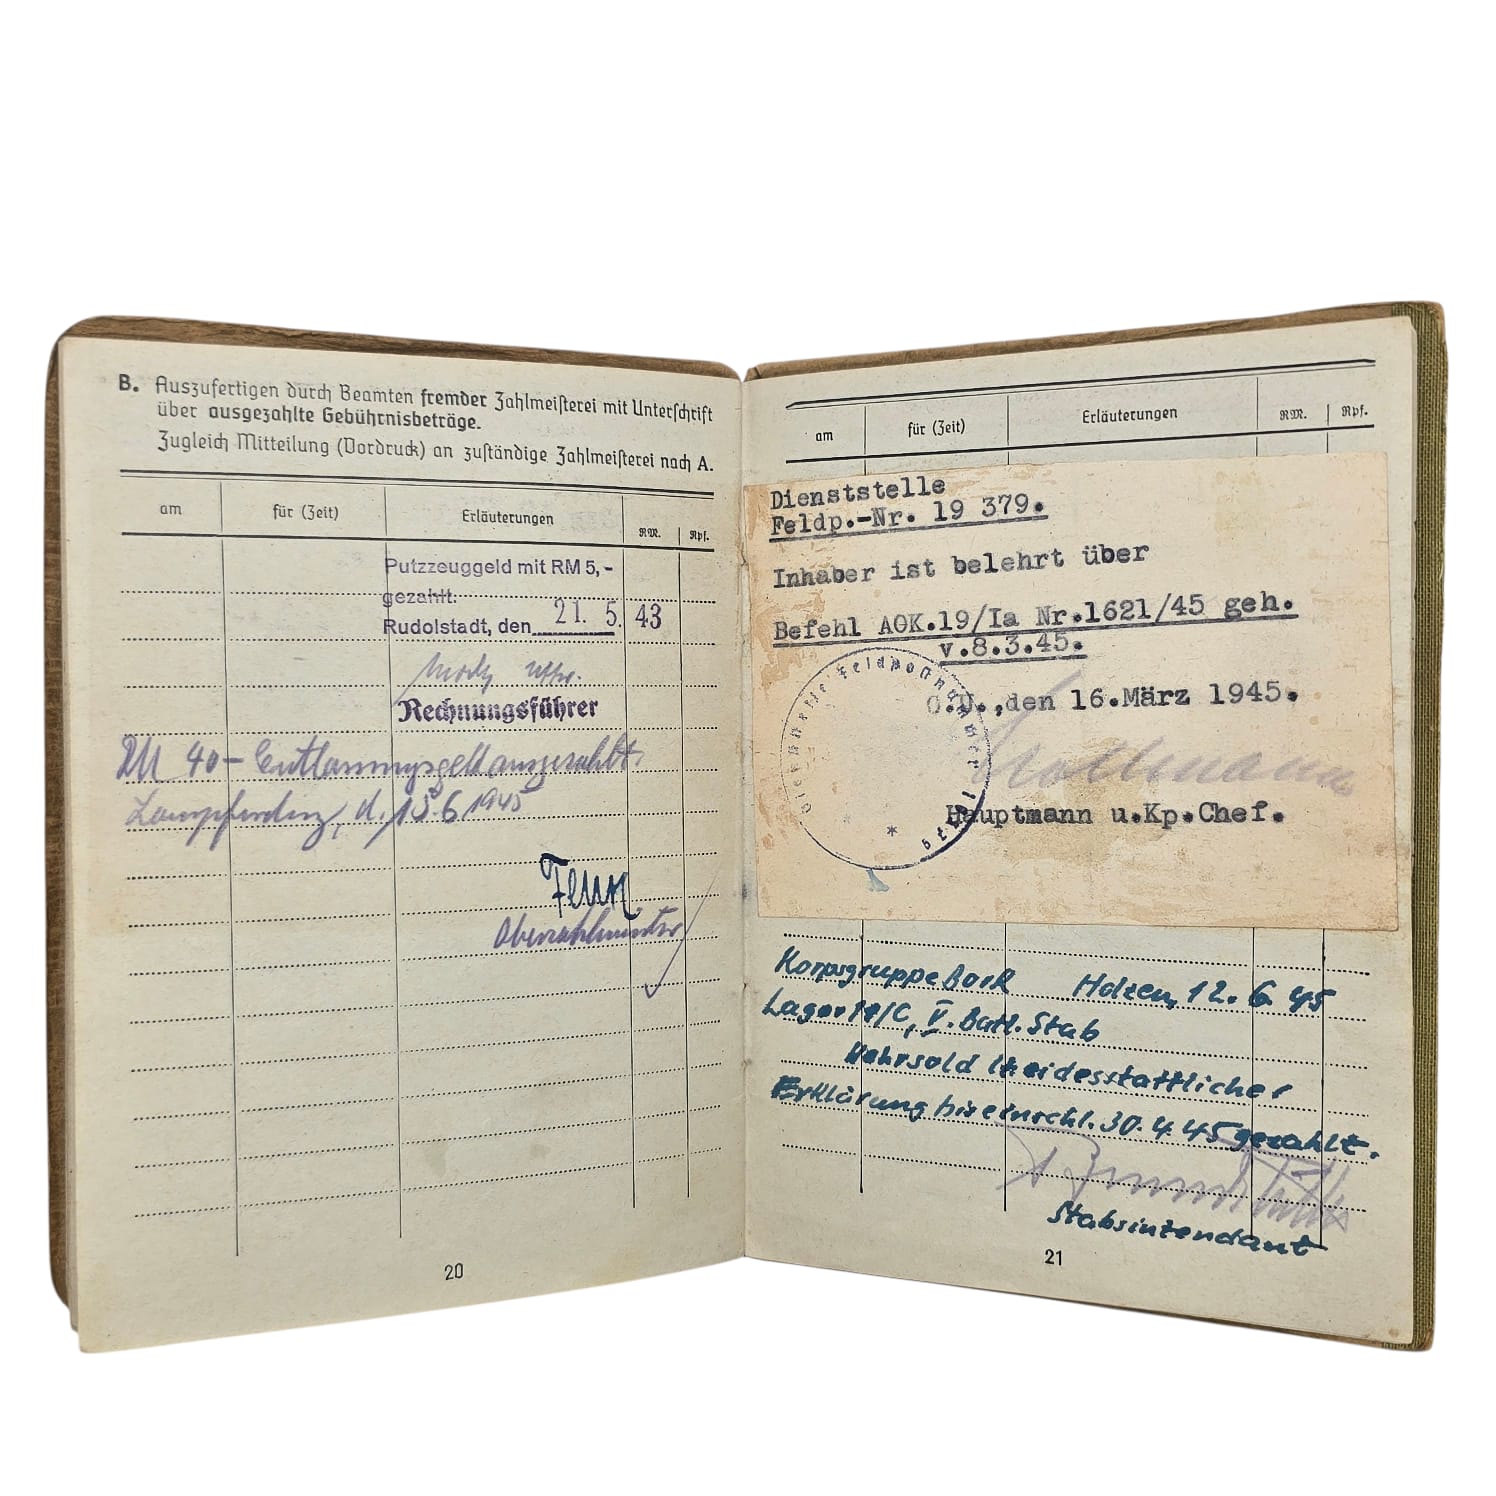 B. Auszufertigen durch Beamten fremder Zahlmeisterei mit Unterschrift
über ausgezahlte Gebührnisbeträge.
Zugleich Mitteilung (Vordruck) an zuständige Zahlmeisterei nach A.
am für (Zeit) Erläuterungen RM. Rpf.
Putzzeuggeld mit RM 5,-
gezahlt.
Rudolstadt, den 21. 5. 43
Uffz.
Rechnungsführer
RM 40- Entlassungsgeld ausgezahlt.
d. 15.6.1945
Oberzahlmeister
20
am für (Zeit) Erläuterungen RM. Rpf.
Dienststelle
Feldp.-Nr. 19 379.
Inhaber ist belehrt über
Befehl AOK.19/Ia Nr.1621/45 geh.
v.8.3.45.
O.U.,den 16.März 1945.
Hauptmann u.Kp.Chef.
Dienststelle Feldpostnummer 19379
Korpsgruppe Bork Holzen, 12. 6. 45
Lager 17/C, V. Batl. Stab
Wehrsold lt. eidesstattlicher
Erklärung bis einschl. 30.4.45 gezahlt.
Stabsintendant
21